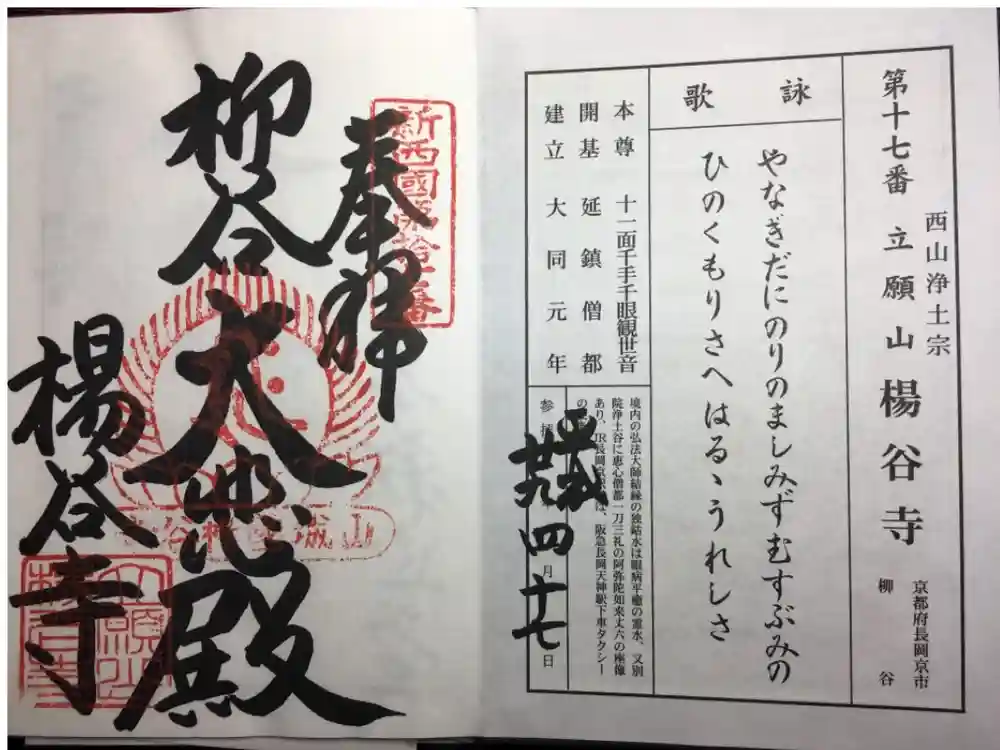 第十七番 立願山 楊谷寺
西山浄土宗
京都府長岡京市
柳谷
詠歌
やなぎだにのりのましみずむすぶみの
ひのくもりさへはるゝうれしさ
本尊 十一面千手千眼観世音
開基 延鎮僧都
建立 大同元年
境内の弘法大師結縁の独鈷水は眼病平癒の霊水、又別
院浄土谷に恵心僧都一刀三礼の阿弥陀如来丈六の座像
あり、JR長岡京駅 は、阪急長岡天神駅下車タクシー
の
参拝 月 日
平成 九 四 十七
新西國第拾七番
奉拝
柳谷大悲殿
楊谷寺
山城國柳谷
立願山楊谷寺